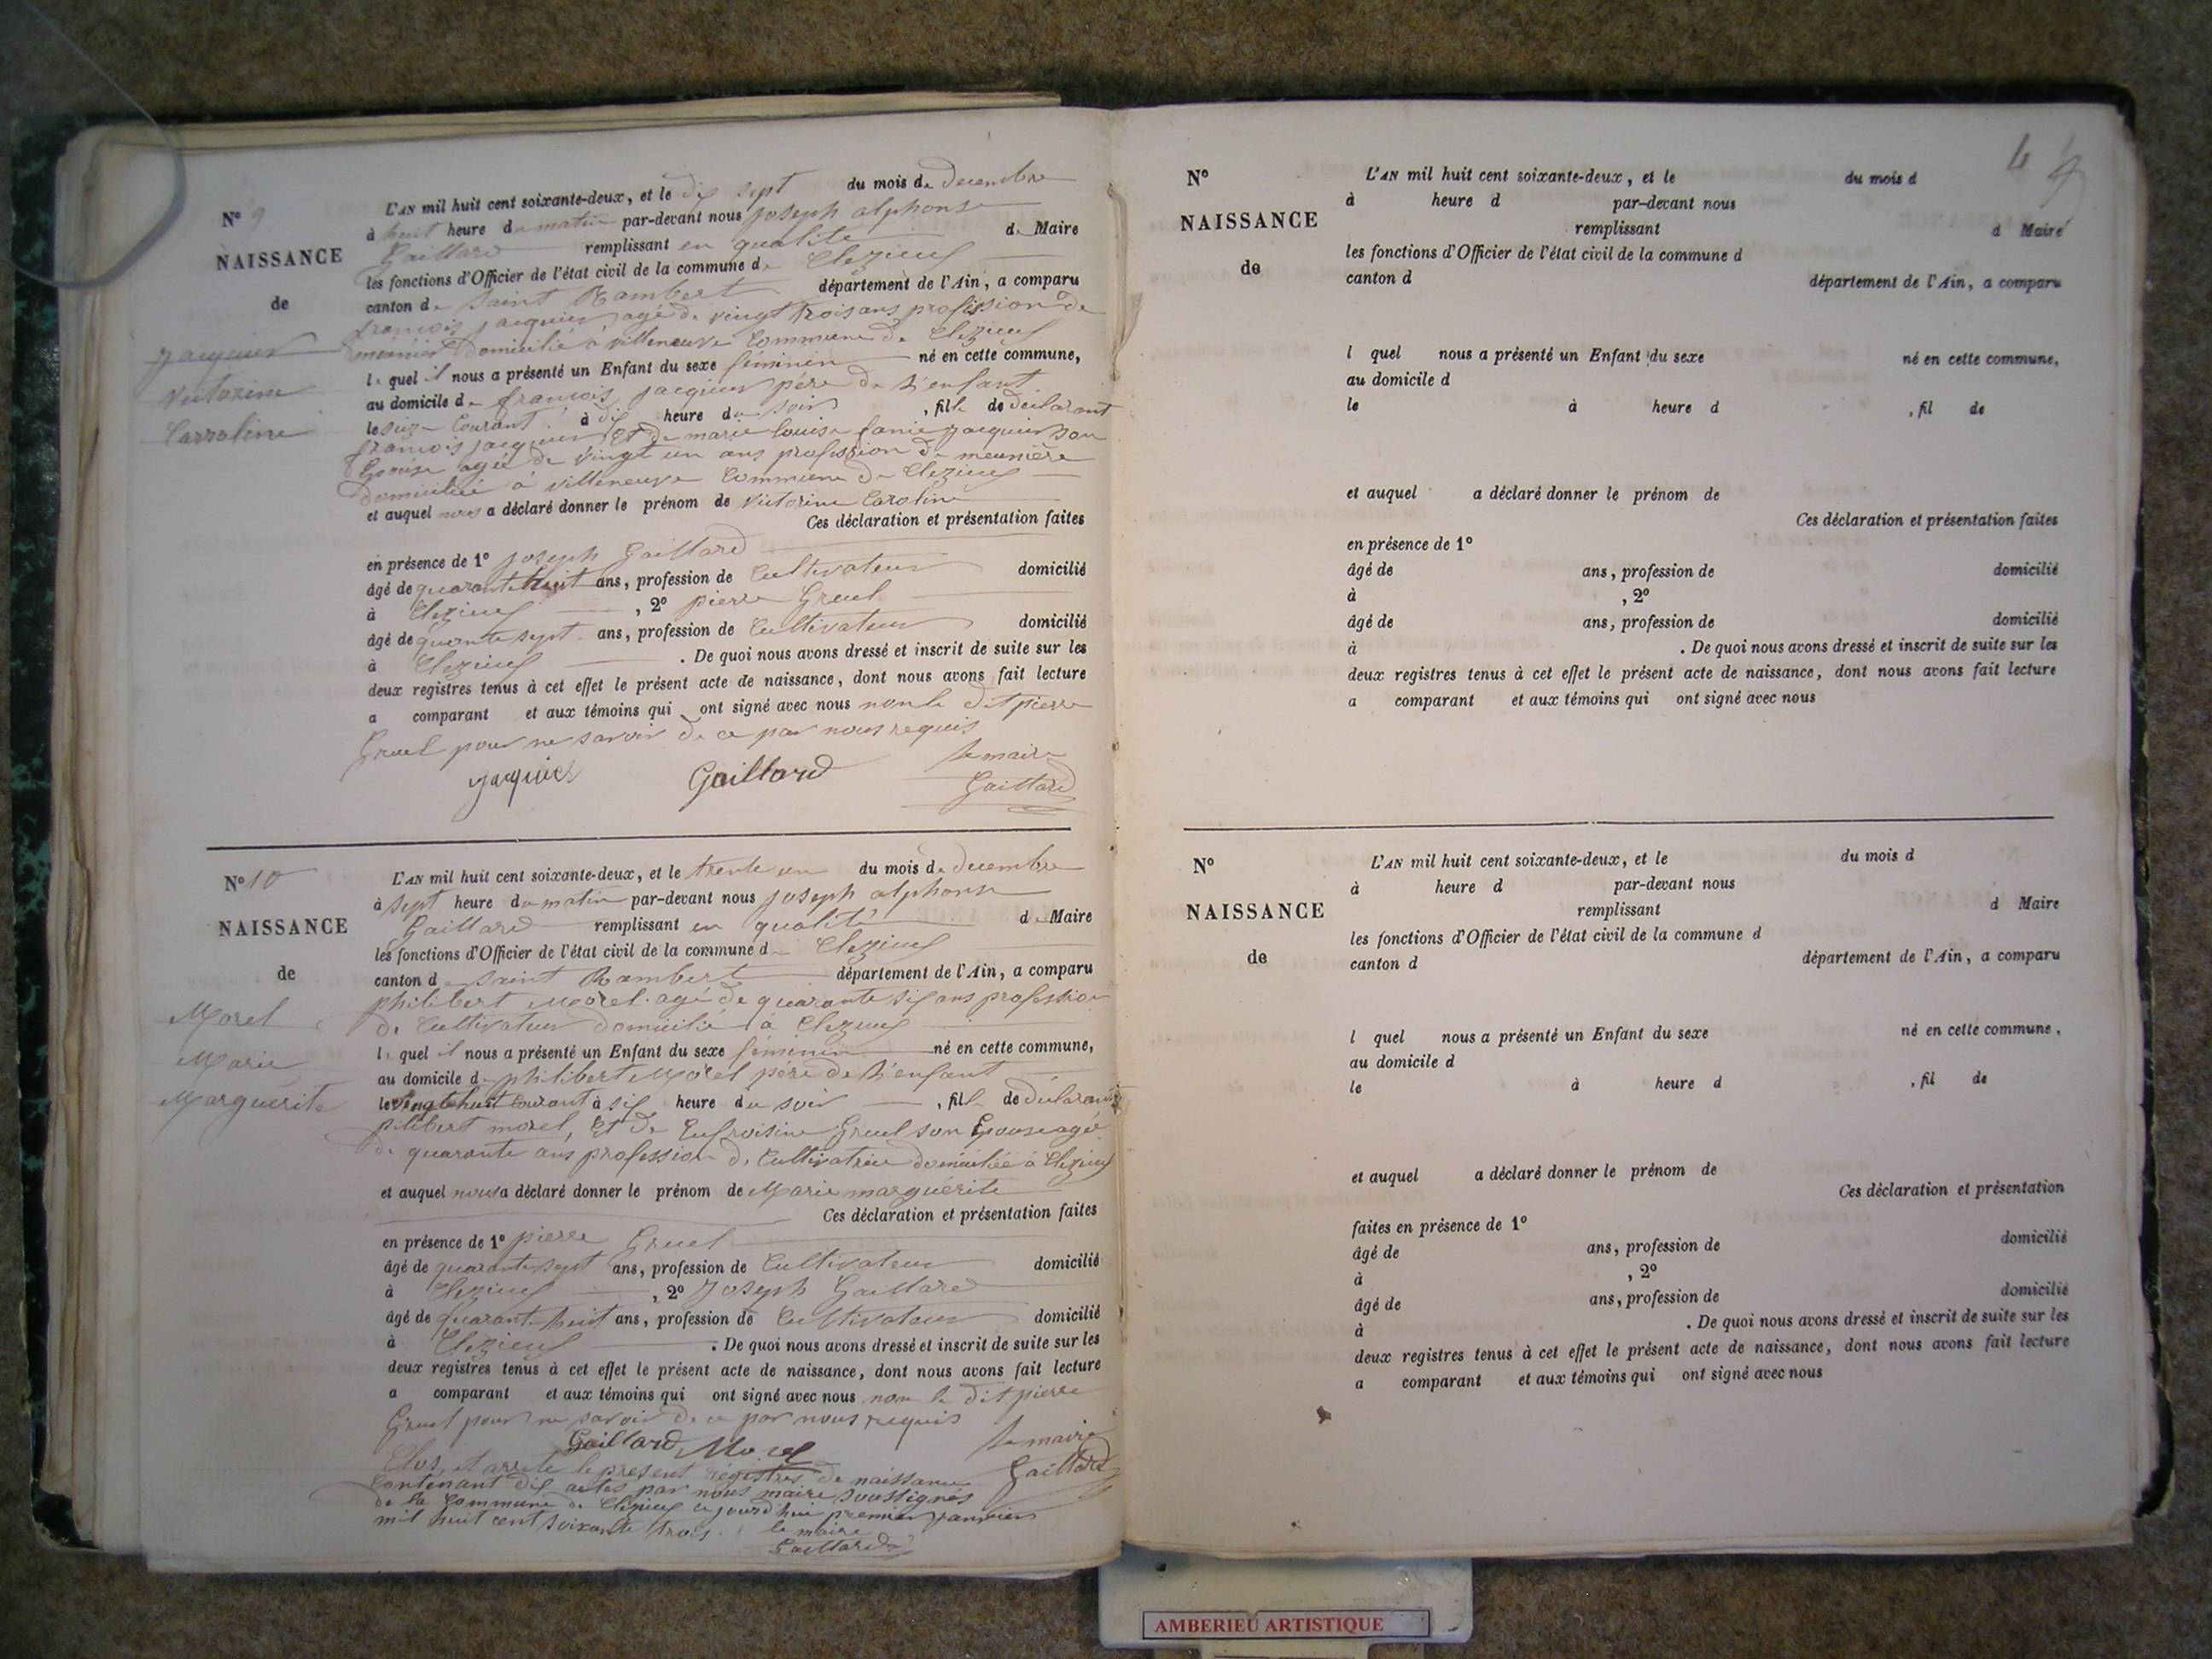 N° 9
NAISSANCE
de
Jacquier
Victorine
Carroline
L'AN mil huit cent soixante-deux, et le dix sept du mois de decembre
à huit heure du matin par-devant nous joseph alphonse
Gaillard remplissant en qualité de Maire
les fonctions d'Officier de l'état civil de la commune de Clezieux
canton de Saint Rambert département de l'Ain, a comparu
françois jacquier, agé de vingt trois ans profession de
meunier domicilié à villeneuve Commune de Clezieux
le quel il nous a présenté un Enfant du sexe féminin né en cette commune,
au domicile de françois jacquier père de L'enfant
le seize Courant à dix heure du soir, fille de declarant
françois jacquier Et de marie louise janie jacquier son
Epouse agée de vingt un ans profession de meunière
domiciliée à villeneuve Commune de Clezieux
et auquel nous a déclaré donner le prénom de Victorine Caroline
Ces déclaration et présentation faites
en présence de 1° joseph Gaillard
âgé de quarante huit ans, profession de Cultivateur domicilié
à Clezieux, 2° pierre Gruel
âgé de quarante sept ans, profession de Cultivateur domicilié
à Clezieux. De quoi nous avons dressé et inscrit de suite sur les
deux registres tenus à cet effet le présent acte de naissance, dont nous avons fait lecture
a comparant et aux témoins qui ont signé avec nous non le dit pierre
Gruel pour ne savoir de ce par nous requis
le maire
jaquier Gaillard Gaillard
N° 10
NAISSANCE
de
Morel
Marie
Marguérite
L'AN mil huit cent soixante-deux, et le trente un du mois de decembre
à sept heure du matin par-devant nous joseph alphonse
Gaillard remplissant en qualité de Maire
les fonctions d'Officier de l'état civil de la commune de Clezieux
canton de Saint Rambert département de l'Ain, a comparu
philibert Morel agé de quarante six ans profession
de Cultivateur domicilié à Clezieux
le quel il nous a présenté un Enfant du sexe féminin né en cette commune,
au domicile de philibert Morel père de L'enfant
le vingt huit Courant à six heure du soir, fille de declarant
pilibert morel, Et de Eufroisine Gruel son Epouse agée
de quarante ans profession de Cultivatrice domiciliée à Clezieux
et auquel nous a déclaré donner le prénom de Marie marguérite
Ces déclaration et présentation faites
en présence de 1° pierre Gruel
âgé de quarante sept ans, profession de Cultivateur domicilié
à Clezieux, 2° Joseph Gaillard
âgé de quarante huit ans, profession de Cultivateur domicilié
à Clezieux. De quoi nous avons dressé et inscrit de suite sur les
deux registres tenus à cet effet le présent acte de naissance, dont nous avons fait lecture
a comparant et aux témoins qui ont signé avec nous non le dit pierre
Gruel pour ne savoir de ce par nous requis
Gaillard Morel le maire
Gaillard
Clos, et arrete le present régistres de naissance
Contenant dix actes par nous maire soussignés
de la Commune de Clezieux ce jourd'hui premier janvier
mil huit cent soixante trois. le maire
Gaillard
4
N°
NAISSANCE
de
L'AN mil huit cent soixante-deux, et le du mois d
à heure d par-devant nous
remplissant d Maire
les fonctions d'Officier de l'état civil de la commune d
canton d département de l'Ain, a comparu
l quel nous a présenté un Enfant du sexe né en cette commune,
au domicile d
le à heure d , fil de
et auquel a déclaré donner le prénom de
Ces déclaration et présentation faites
en présence de 1°
âgé de ans, profession de domicilié
à , 2°
âgé de ans, profession de domicilié
à . De quoi nous avons dressé et inscrit de suite sur les
deux registres tenus à cet effet le présent acte de naissance, dont nous avons fait lecture
a comparant et aux témoins qui ont signé avec nous
N°
NAISSANCE
de
L'AN mil huit cent soixante-deux, et le du mois d
à heure d par-devant nous
remplissant d Maire
les fonctions d'Officier de l'état civil de la commune d
canton d département de l'Ain, a comparu
l quel nous a présenté un Enfant du sexe né en cette commune,
au domicile d
le à heure d , fil de
et auquel a déclaré donner le prénom de
Ces déclaration et présentation
faites en présence de 1°
âgé de ans, profession de domicilié
à , 2°
âgé de ans, profession de domicilié
à . De quoi nous avons dressé et inscrit de suite sur les
deux registres tenus à cet effet le présent acte de naissance, dont nous avons fait lecture
a comparant et aux témoins qui ont signé avec nous
AMBERIEU ARTISTIQUE